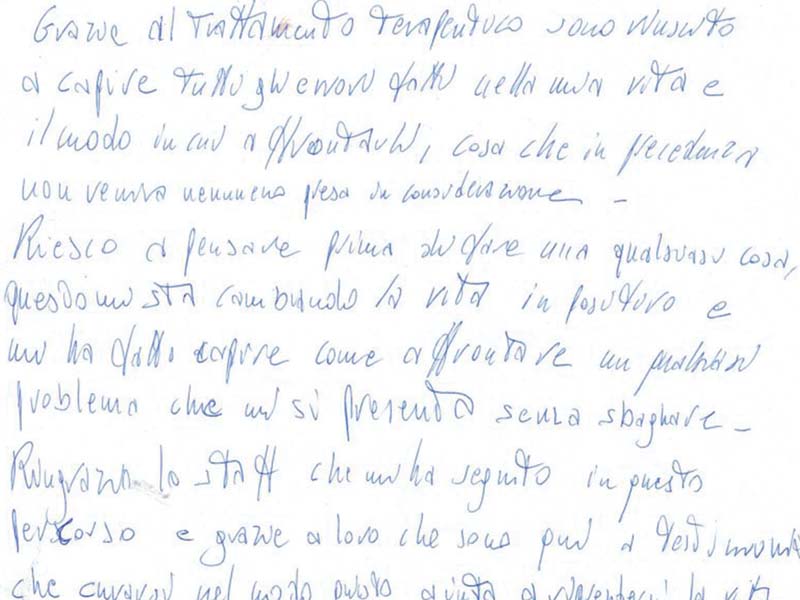 Grazie al trattamento terapeutico sono riuscito
a capire tutti gli errori fatti nella mia vita e
il modo in cui affrontarli, cosa che in precedenza
non veniva nemmeno presa in considerazione -
Riesco a pensare prima di fare una qualsiasi cosa,
questo mi sta cambiando la vita in positivo e
mi ha fatto capire come affrontare un qualsiasi
problema che mi si presenta senza sbagliare -
Ringrazio lo staff che mi ha seguito in questo
percorso e grazie a loro che sono qui a testimoniare
che curarsi nel modo giusto aiuta a la vita